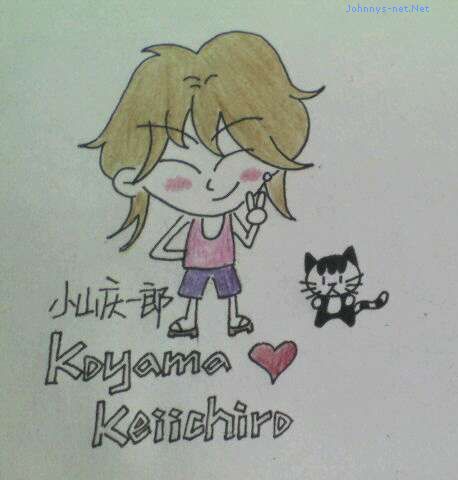 Johnnys-net.Net
小山庆一郎
Koyama
Keiichiro